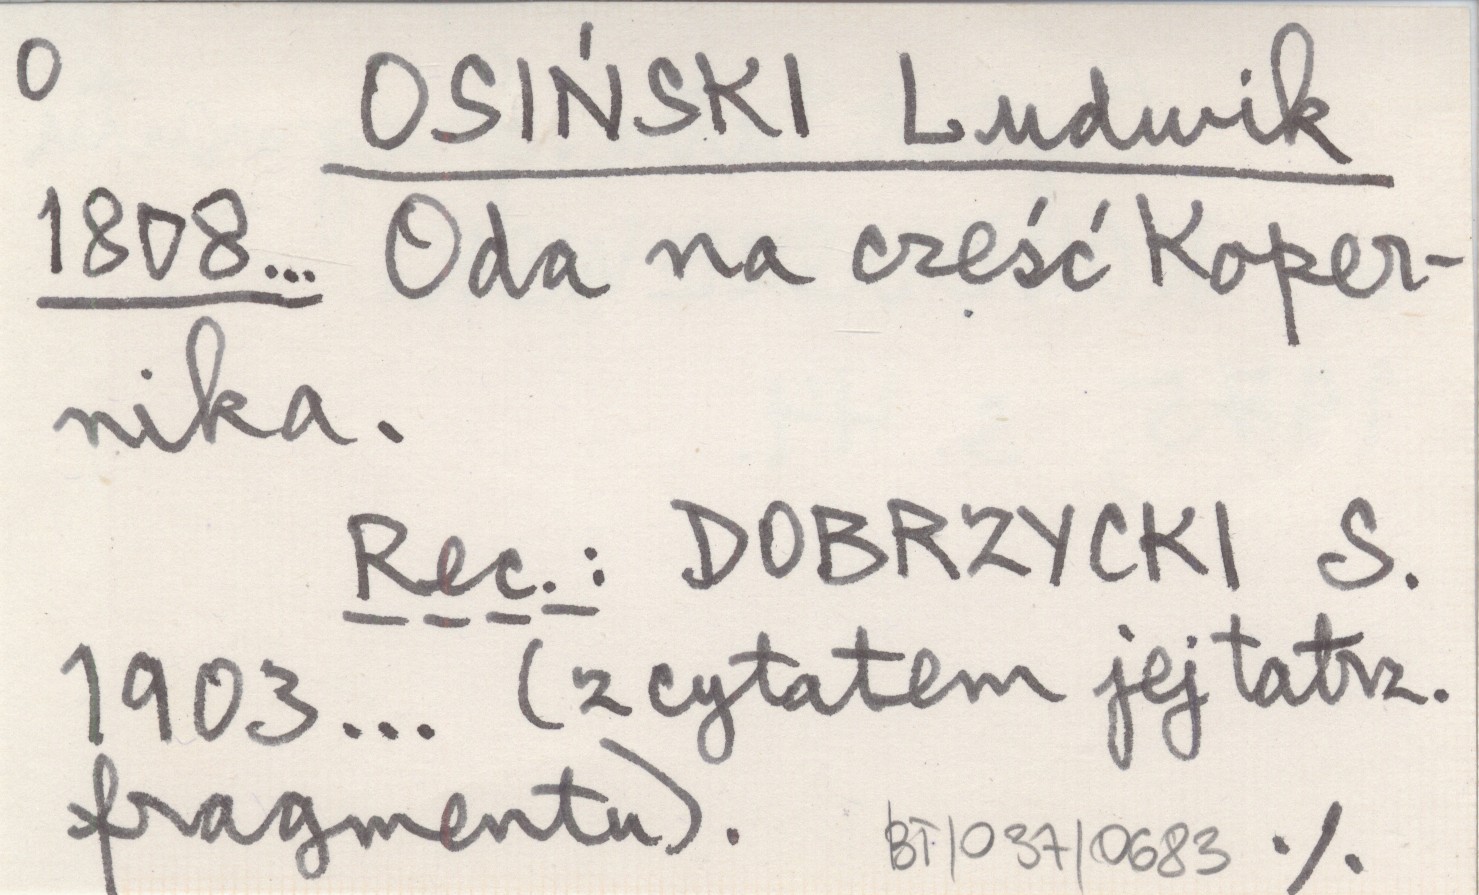 O
OSIŃSKI Ludwik
1808... Oda na cześć Koper-
nika.
Rec.: DOBRZYCKI S.
1903... (z cytatem jej tatrz.
fragmentu).
BT/037/0683 ./.